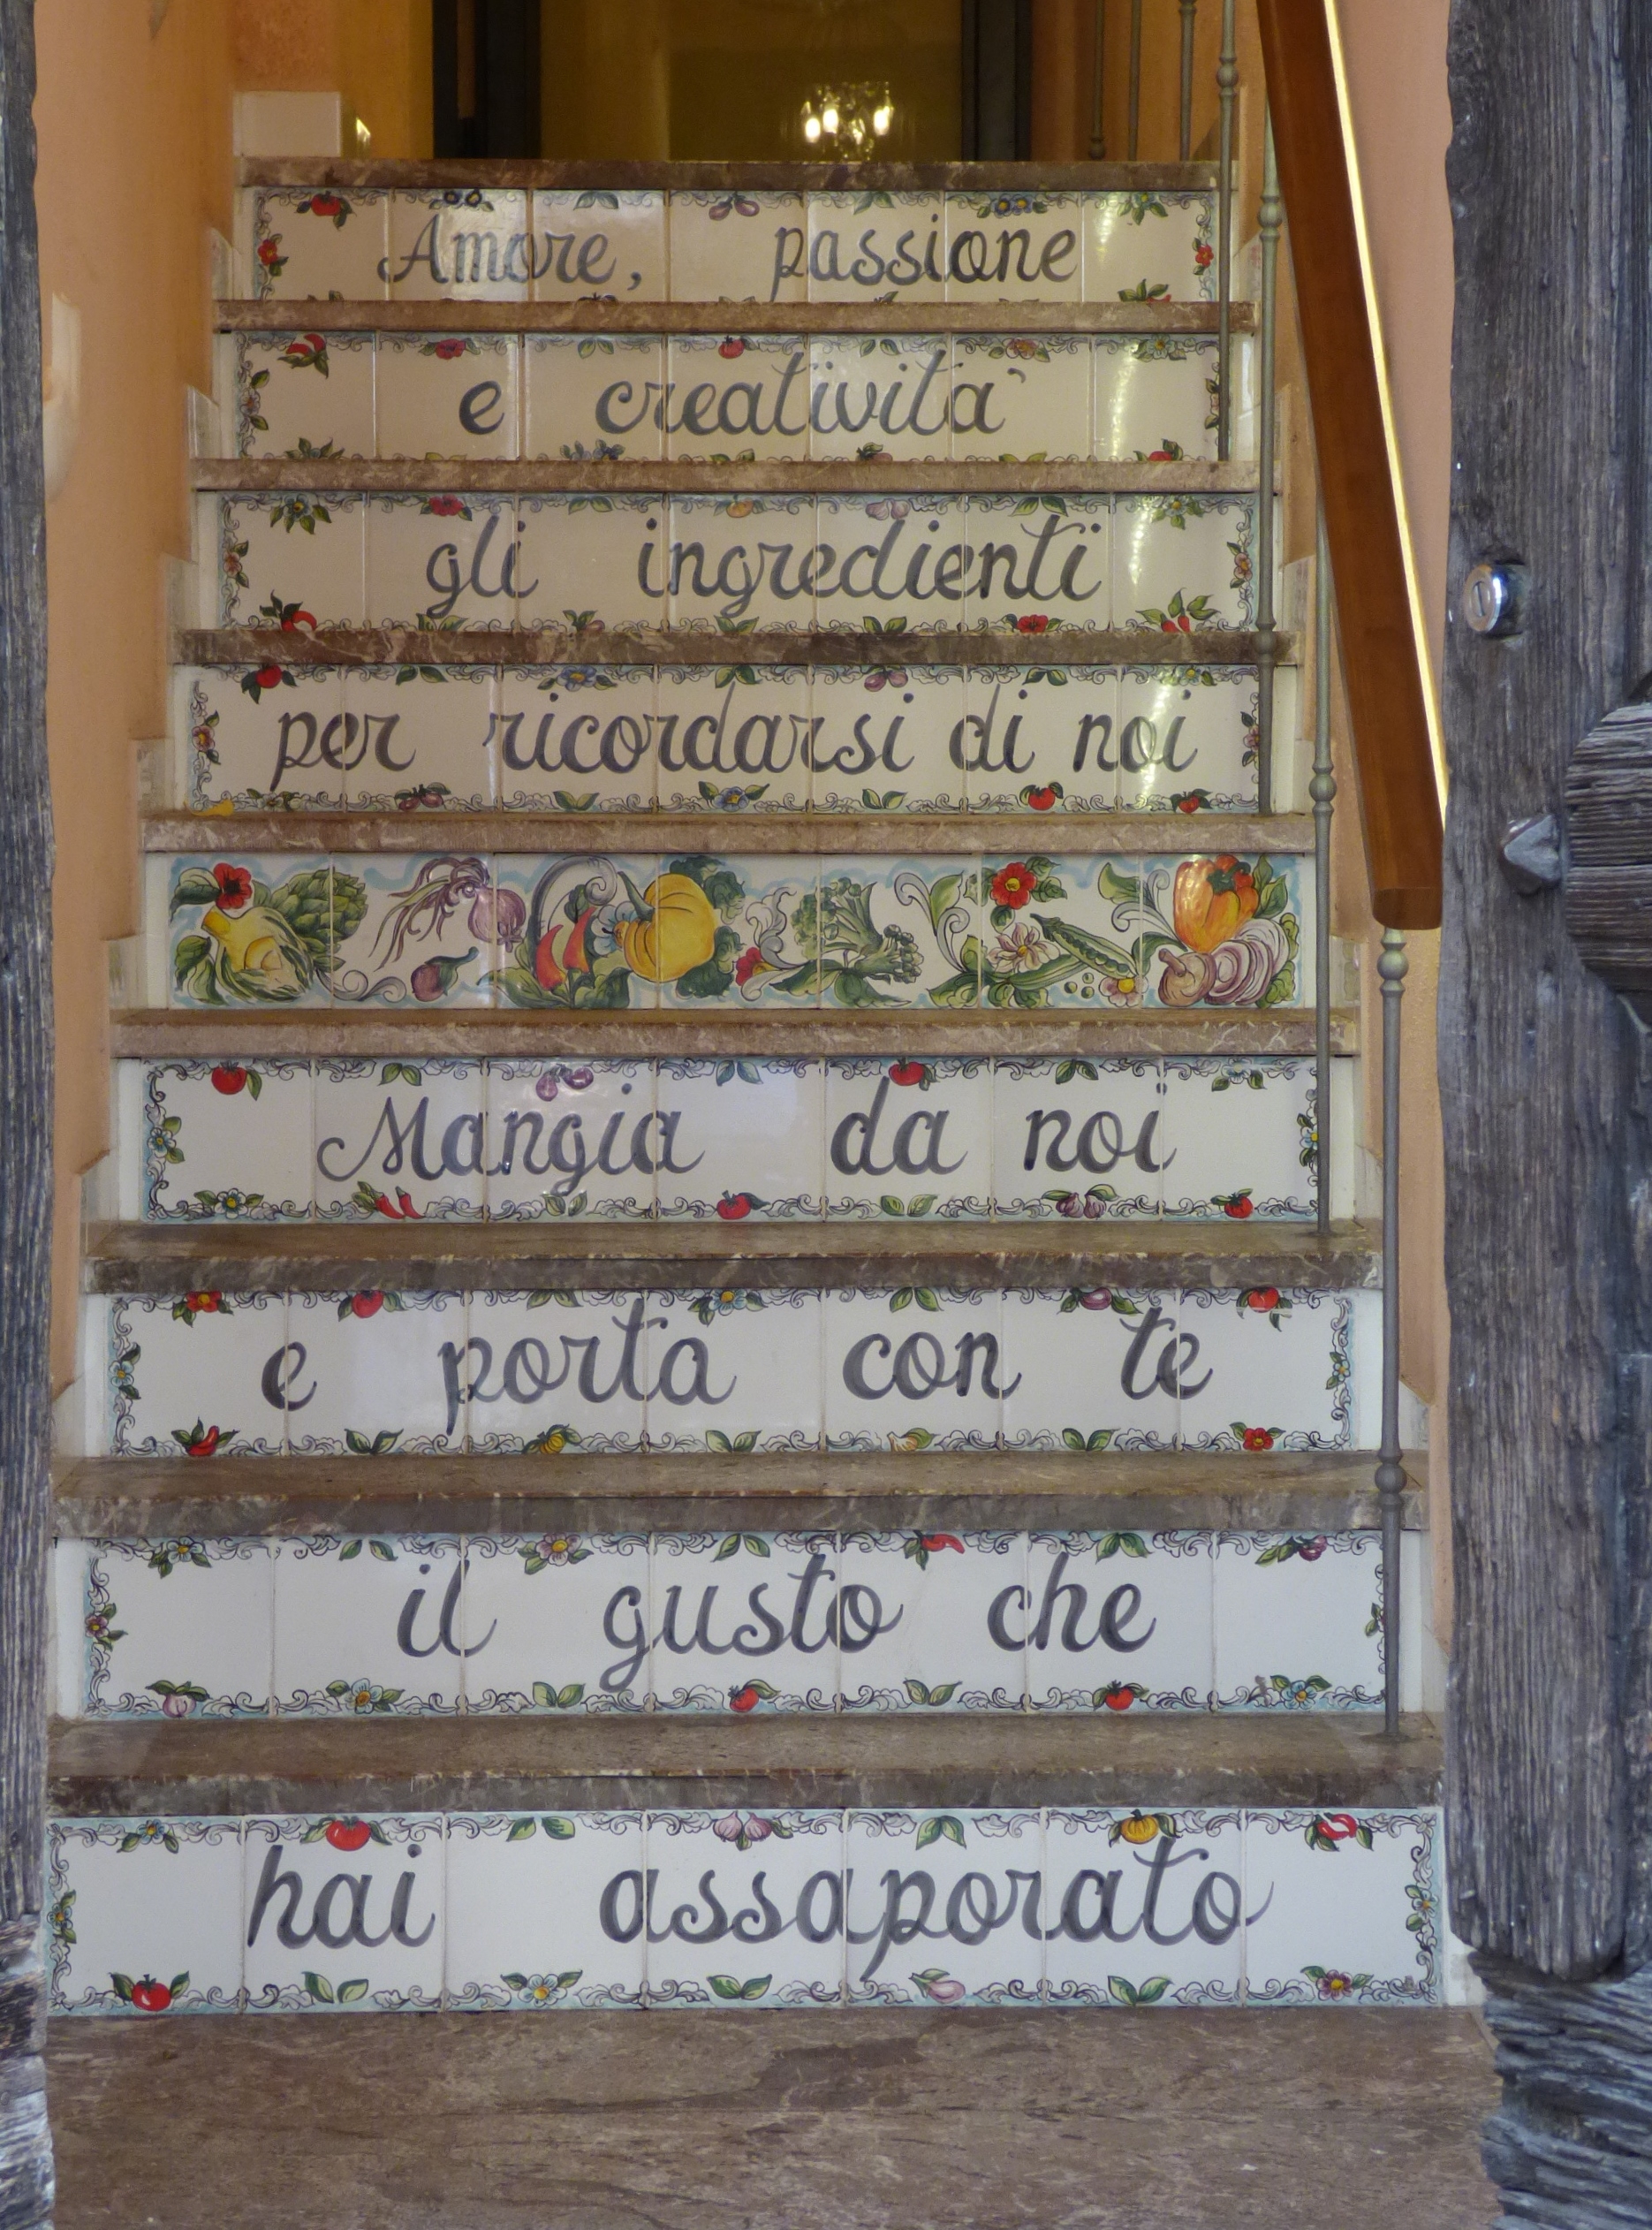 Amore, passione
e creativita'
gli ingredienti
per ricordarsi di noi
Mangia da noi
e porta con te
il gusto che
hai assaporato